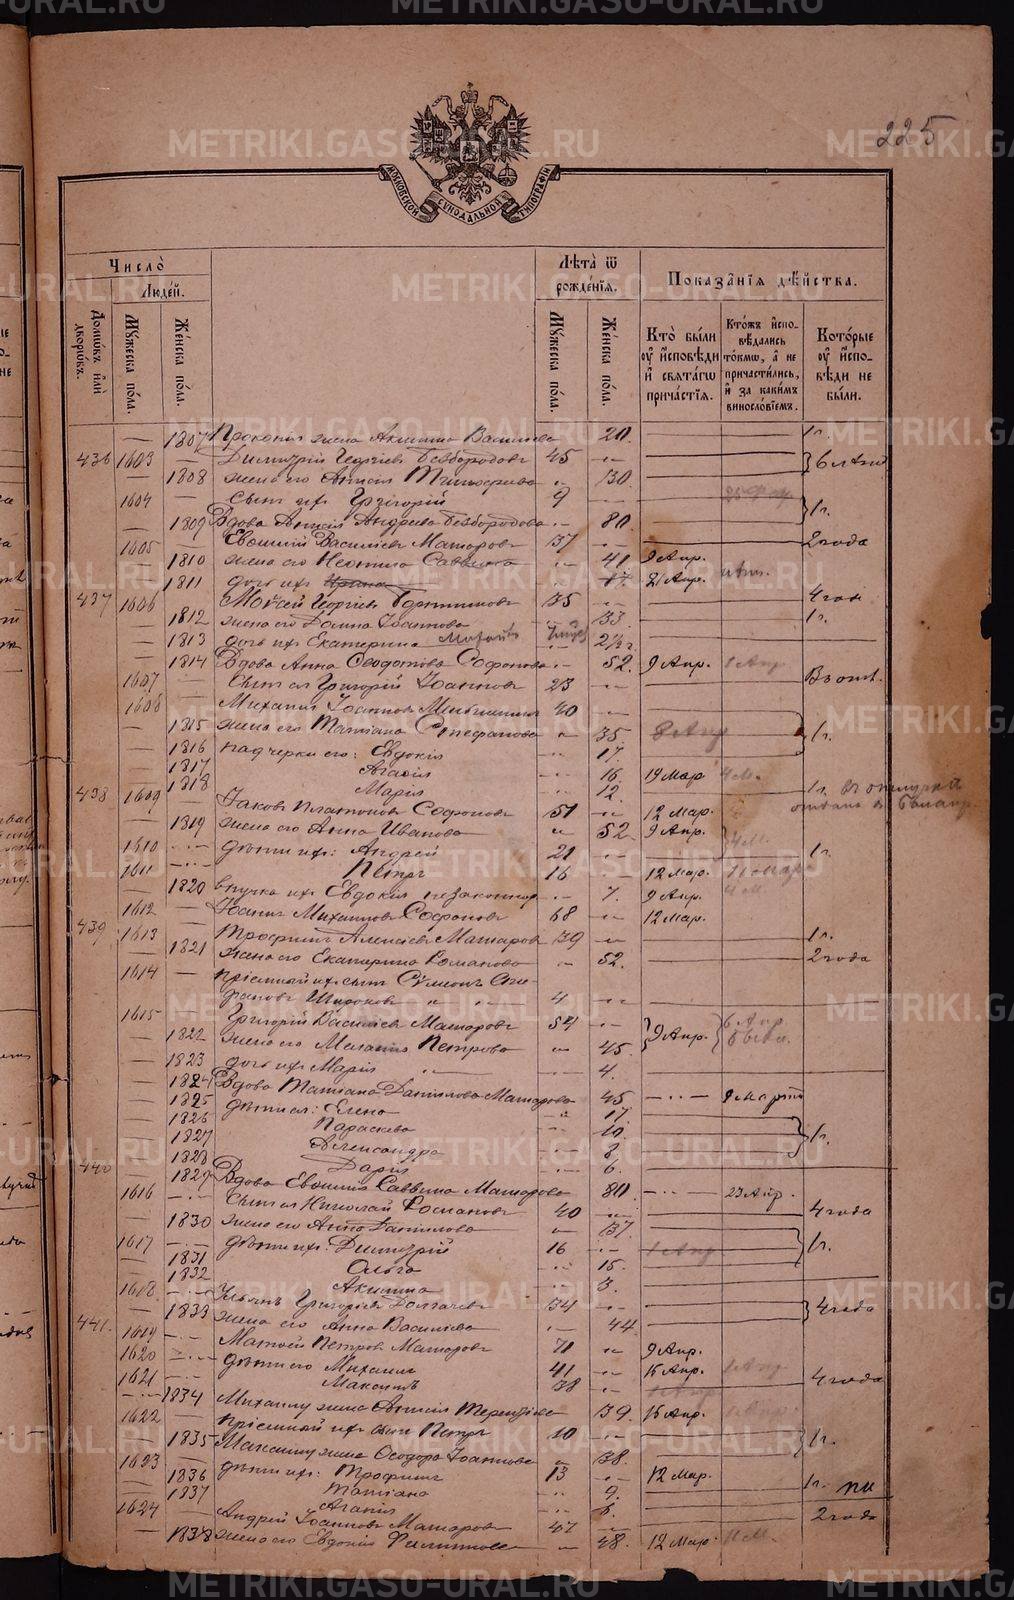 METRIKI.GASO-URAL.RU
225
МОСКОВСКОЙ СѴНОДАЛЬНОЙ ТИПОГРАФІИ
Число̀
Люде́й.
Домѡ́въ и҆лѝ дворѡ́въ.
Мꙋ́жеска по́ла.
Же́нска по́ла.
Лѣ́та ѿ рожде́нїѧ.
Мꙋ́жеска по́ла.
Же́нска по́ла.
Показа̑нїѧ дѣ́йства.
Кто̀ бы́ли ᲂу҆ и҆сповѣ́ди и҆ ст҃а́гѡ прича́стїѧ.
Кто́жъ и҆сповѣ́дались то́кмѡ, а҆ не причасти́лись, и҆ за каки́мъ винословїемъ.
Кото́рые ᲂу҆ и҆сповѣ́ди не бы́ли.
— 1807 Прокопія жена Акилина Васильева 20. 1 г.
436 1603 — Димитрій Георгіевъ Безбородовъ 45 6 лѣтъ
— 1808 жена его Анисія 30.
1604 — сынъ ихъ Григорій 9
— 1809 Вдова Анисія Андреева Безбородова 80. 1 г.
1605 — Евѳимій Василіевъ Маторовъ 37 2 года
— 1810 жена его Неонила Саввина 41 9 Апр.
— 1811 дочь ихъ Ирина 17. 21 Апр.
437 1606 — Моѵсей Георгіевъ 35 4 год
— 1812 жена его Домна Іоаннова 33. 1 г.
— 1813 дочь ихъ Екатерина 2½ г
— 1814 Вдова Анна Ѳеодотова Софонова 52. 9 Апр.
1607 — сынъ ея Григорій Іоанновъ 23
1608 — Михаилъ Іоанновъ 40
— 1815 жена его Татіана Стефанова 35 1 г.
— 1816 падчерки его: Евдокія 17.
— 1817 Агафія 16. 19 Мар. 4 м.
— 1818 Марія 12. 1 г.
438 1609 — Іаковъ Платоновъ Софоновъ 51 12 Мар.
— 1819 жена его Анна Иванова 52. 9 Апр.
1610 — дѣти ихъ: Андрей 21 1 г.
1611 — Петръ 16 12 Мар.
— 1820 внучка ихъ Евдокія незаконнор. 7. 9 Апр. 4 м.
1612 — Іоаннъ Михаиловъ Софоновъ 68 12 Мар.
439 1613 — Трофимъ Алексіевъ Маторовъ 39 1 г.
— 1821 жена его Екатерина Романова 52. 2 года
1614 — пріемный ихъ сынъ Сѵмеонъ Сте-
фановъ 4
1615 — Григорій Василіевъ Маторовъ 54 9 Апр. 6 Апр
— 1822 жена его Меланія Петрова 45.
— 1823 дочь ихъ Марія 4.
— 1824 Вдова Татіана Даніилова Маторова 45 9 мартъ
— 1825 дѣти ея: Елена 17
— 1826 Параскева 10. 1 г.
— 1827 Александра 8
— 1828 Дарія 6.
440 — 1829 Вдова Евѳимія Саввина Маторова 80 23 Апр.
1616 — сынъ ея Николай Романовъ 40 4 года
— 1830 жена его Анна Даніилова 37.
1617 — дѣти ихъ: Димитрій 16 1 г.
— 1831 Ольга 15.
— 1832 Акилина 3.
1618 — Григоріевъ 34 4 года
— 1833 жена его Анна Василіева 44
441. 1619 — Матѳей Петровъ Маторовъ 71 9 Апр.
1620 — дѣти его Михаилъ 41 15 Апр.
1621 — Максимъ 38 4 года
— 1834 Михаилу жена Анисія Терентіева 39. 15 Апр.
1622 — пріемный ихъ сынъ Петръ 10 1 г.
— 1835 Максиму жена Ѳеодора Іоаннова 38.
1623 — дѣти ихъ: Трофимъ 13 12 Мар.
— 1836 Татіана 9. 1 г.
— 1837 Агапія
1624 — Андрей Іоанновъ Маторовъ 47 2 года
— 1838 жена его Евдокія Филиппова 48. 12 Мар.